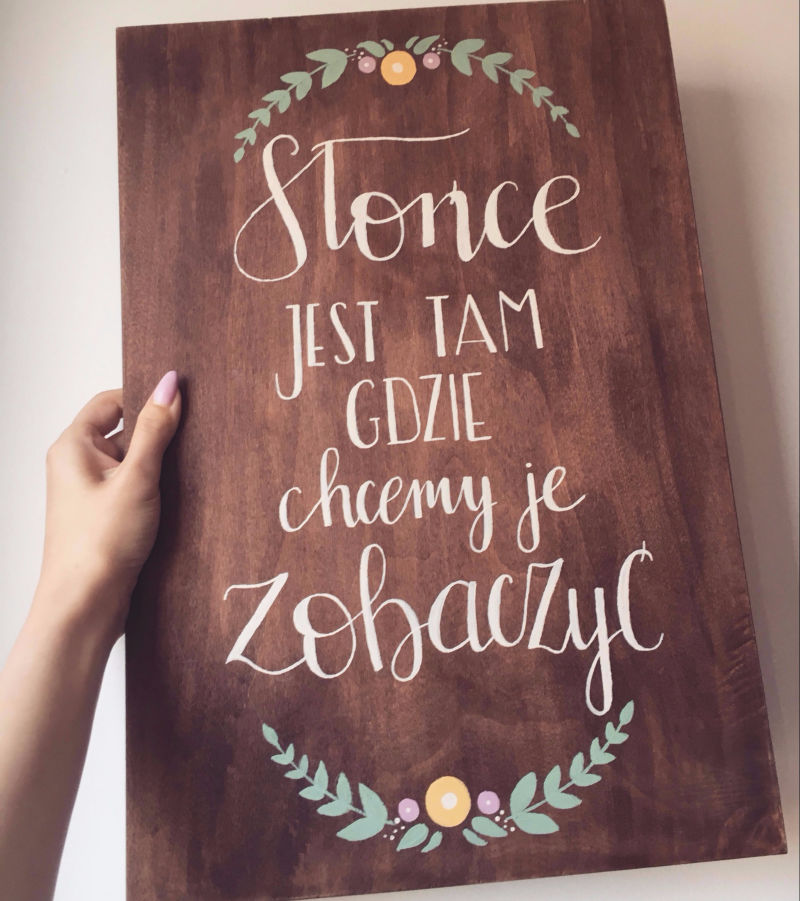 Słońce
JEST TAM
GDZIE
chcemy je
zobaczyć